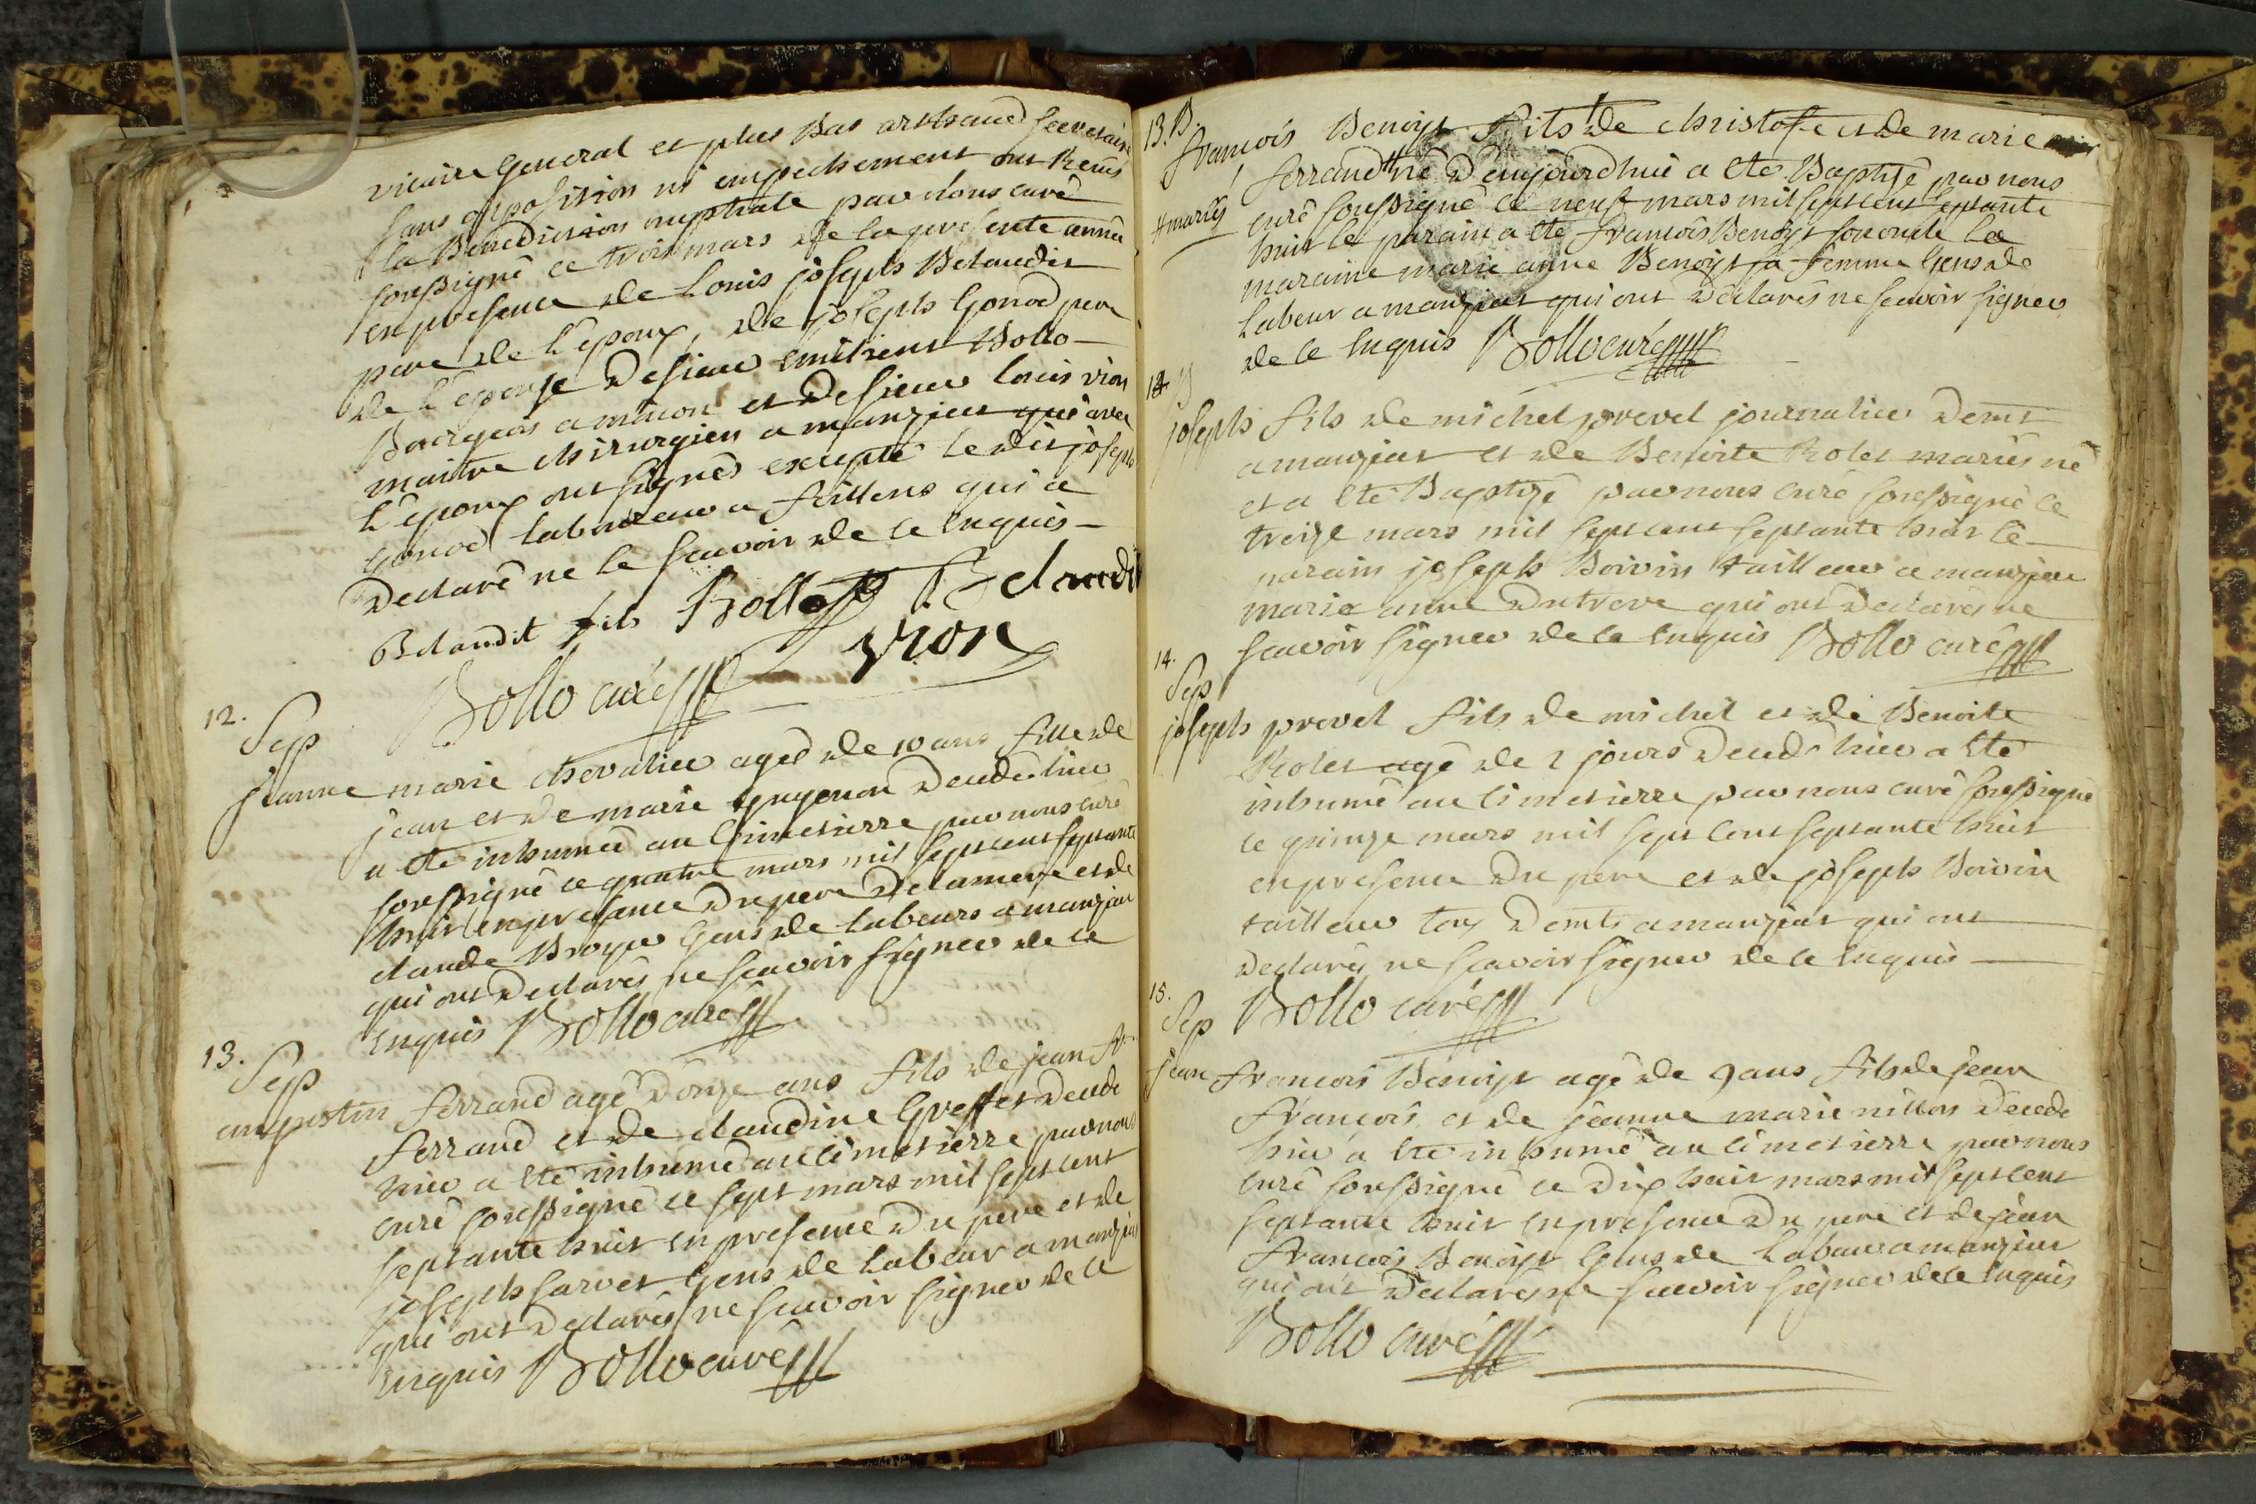 vicaire General et plus Bas arthaud secretaire
sans opposition ni empechement ont Reçus
la Benediction nuptiale par nous curé
soussigné ce trois mars de la presente année
en presence de Louis joseph Belaudit
pere de l'epoux, de joseph Gonod pere
de l'epouse de sieur emilient Bollo
Bourgeois a macon et de sieur louis vion
maitre chirurgien a manziat qui avec
l'epoux ont signés excepté le dit joseph
Gonod laboureur a fillens qui a
declaré ne le scavoir de ce enquis
Belaudit fils Bollo Belaudit
Bollo curé vion
12.
Sep
jeanne marie chevalier ageé de 10 ans fille de
jean et de marie guyenon decedé hier
a eté inhumeé au Cimetierre par nous curé
soussigné ce quatre mars mil sept cent septante
huit en presence du pere de la mere et de
claude Broyer Gens de labeurs a manziat
qui ont declarés ne scavoir signer de ce
enquis Bollo curé
13.
Sep
augustin ferrand agé d'onze ans fils de jean fr
ferrand et de claudine Greffet decedé
hier a eté inhumé au cimetierre par nous
curé soussigné ce sept mars mil sept cent
septante huit en presence du pere et de
joseph sarvet Gens de labeur a manziat
qui ont declarés ne scavoir signer de ce
enquis Bollo curé
13. B.
françois Benoist fils de christofe et de marie
ferrand # né d'aujourdhui a eté Baptisé par nous
# mariés curé soussigné ce neuf mars mil sept cent septante
huit le parain a eté françois Benoist son oncle la
maraine marie anne Benoist sa femme Gens de
labeur a manziat qui ont declarés ne scavoir signer
de ce enquis Bollo curé
14 B
joseph fils de michel prevel journalier demt
a manziat et de Benoite Rolet mariés né
et a eté Baptizé par nous curé soussigné ce
treize mars mil sept cent septante huit le
parain joseph Boivin tailleur a manziat
marie anne dutreve qui ont declarés ne
scavoir signer de ce enquis Bollo curé
14.
Sep
joseph prevel fils de michel et de Benoite
Rolet agé de 2 jours decedé hier a eté
inhumé au cimetierre par nous curé soussigné
ce quinze mars mil sept cent septante huit
en presence du pere et de joseph Boivin
tailleur tous demts a manziat qui ont
declarés ne scavoir signer de ce enquis
15.
Sep Bollo curé
jean françois Benoist agé de 9 ans fils de jean
françois et de jeanne marie nillon decedé
hier a eté inhumé au cimetierre par nous
curé soussigné ce dix huit mars mil sept cent
septante huit en presence du pere et de jean
françois Benoist Gens de labeur a manziat
qui ont declarés ne scavoir signer de ce enquis
Bollo curé